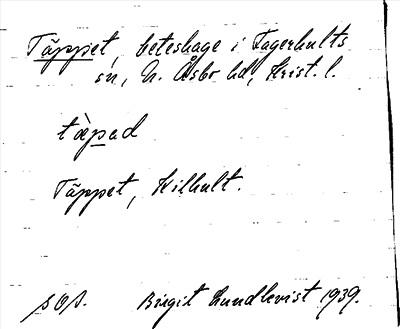 Täppet, beteshage i Fagerhults
sn, N. Åsbo hd, Krist. l.
tæ̀pad
Täppet, Kilhult.
sOs. Birgit Lundkvist 1939.